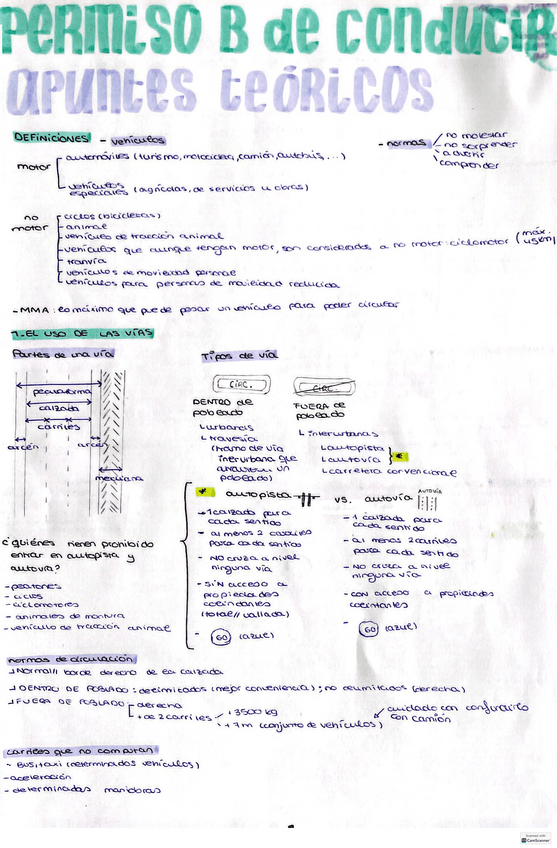 PERMISO B de CONDUCIR
apuntes teóricos
DEFINICIONES - vehículos
motor
automóviles (turismo, motocicleta, camión, autobús, ...)
vehículos especiales (agrícolas, de servicios u obras)
- normas
no molestar
no sorprender
advertir
comprender
no motor
ciclos (bicicletas)
animal
vehículo de tracción animal
vehículos que aunque tengan motor, son considerados a no motor: ciclomotor (máx. 45km)
tranvía
vehículos de movilidad personal
vehículos para personas de movilidad reducida
- MMA: lo máximo que puede pesar un vehículo para poder circular
1.-EL USO DE LAS VÍAS
Partes de una vía
plataforma
calzada
carriles
arcén
arcén
mediana
Tipos de vía
CIRC.
DENTRO DE poblado
urbanas
travesía
(tramo de vía
interurbana que
un
poblado)
CIRC.
FUERA de poblado
interurbanas
autopista
autovía
*
carretera convencional
¿quiénes tienen prohibido
entrar en autopista y
autovía?
- peatones
- ciclos
- ciclomotores
- animales de montura
- vehículo de tracción animal
* autopista
- 1 calzada para
cada sentido
- al menos 2 carriles
para cada sentido
- NO cruza a nivel
ninguna vía
- SIN acceso a
propiedades
colindantes
(total// vallada)
- 60 (azul)
vs. autovía
AUTOVÍA
- 1 calzada para
cada sentido
- al menos 2 carriles
para cada sentido
- NO cruza a nivel
ninguna vía
- con acceso a propiedades
colindantes
- 60 (azul)
normas de circulación
Normal// borde derecho de la calzada
DENTRO DE POBLADO: delimitados (mejor conveniencia); no delimitados (derecha)
FUERA DE POBLADO
derecha
+ de 2 carriles
+3500 kg
+7m (conjunto de vehículos)
cuidado con confundirlo
con camión
carriles que no computan
- BUS, taxi (determinados vehículos)
- aceleración
- determinadas maniobras
Scanned with
CamScanner